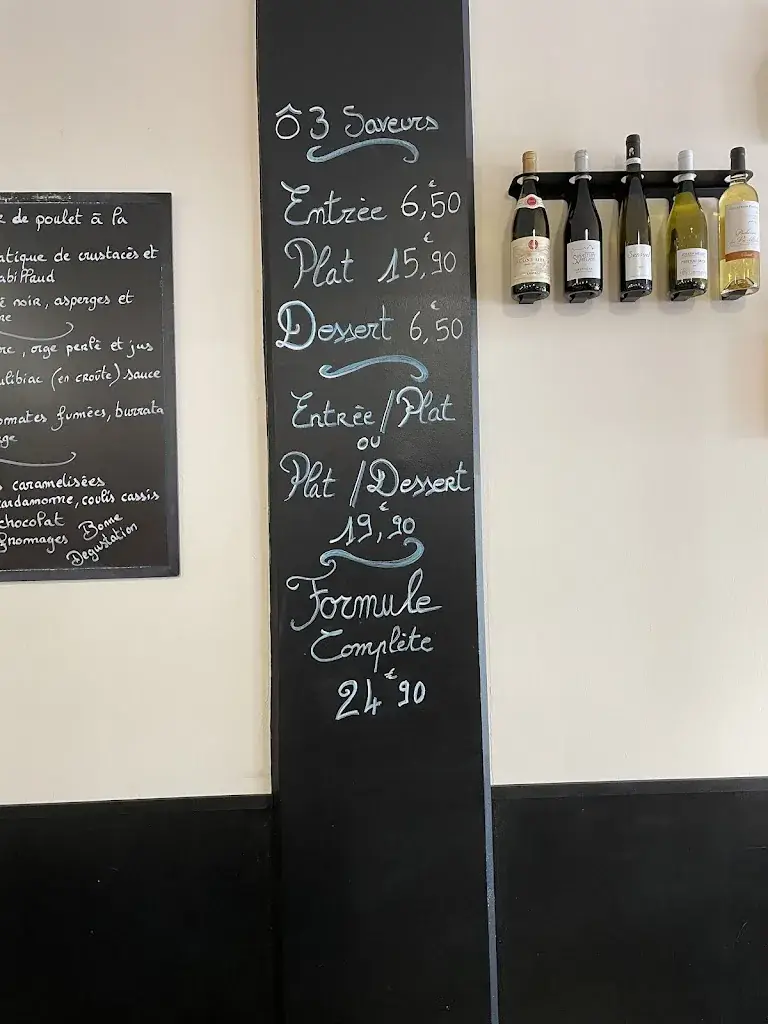 de poulet à la
crustacés et
noir, asperges et
, orge perlé et jus
(en croûte) sauce
tomates fumées, burrata
caramelisées
cardamome, coulis cassis
chocolat
fromages Bonne
Degustation
Ô 3 Saveurs
Entrée 6,€50
Plat 15,€90
Dessert 6,€50
Entrée/Plat
ou
Plat/Dessert
19,€90
Formule
Complète
24€90